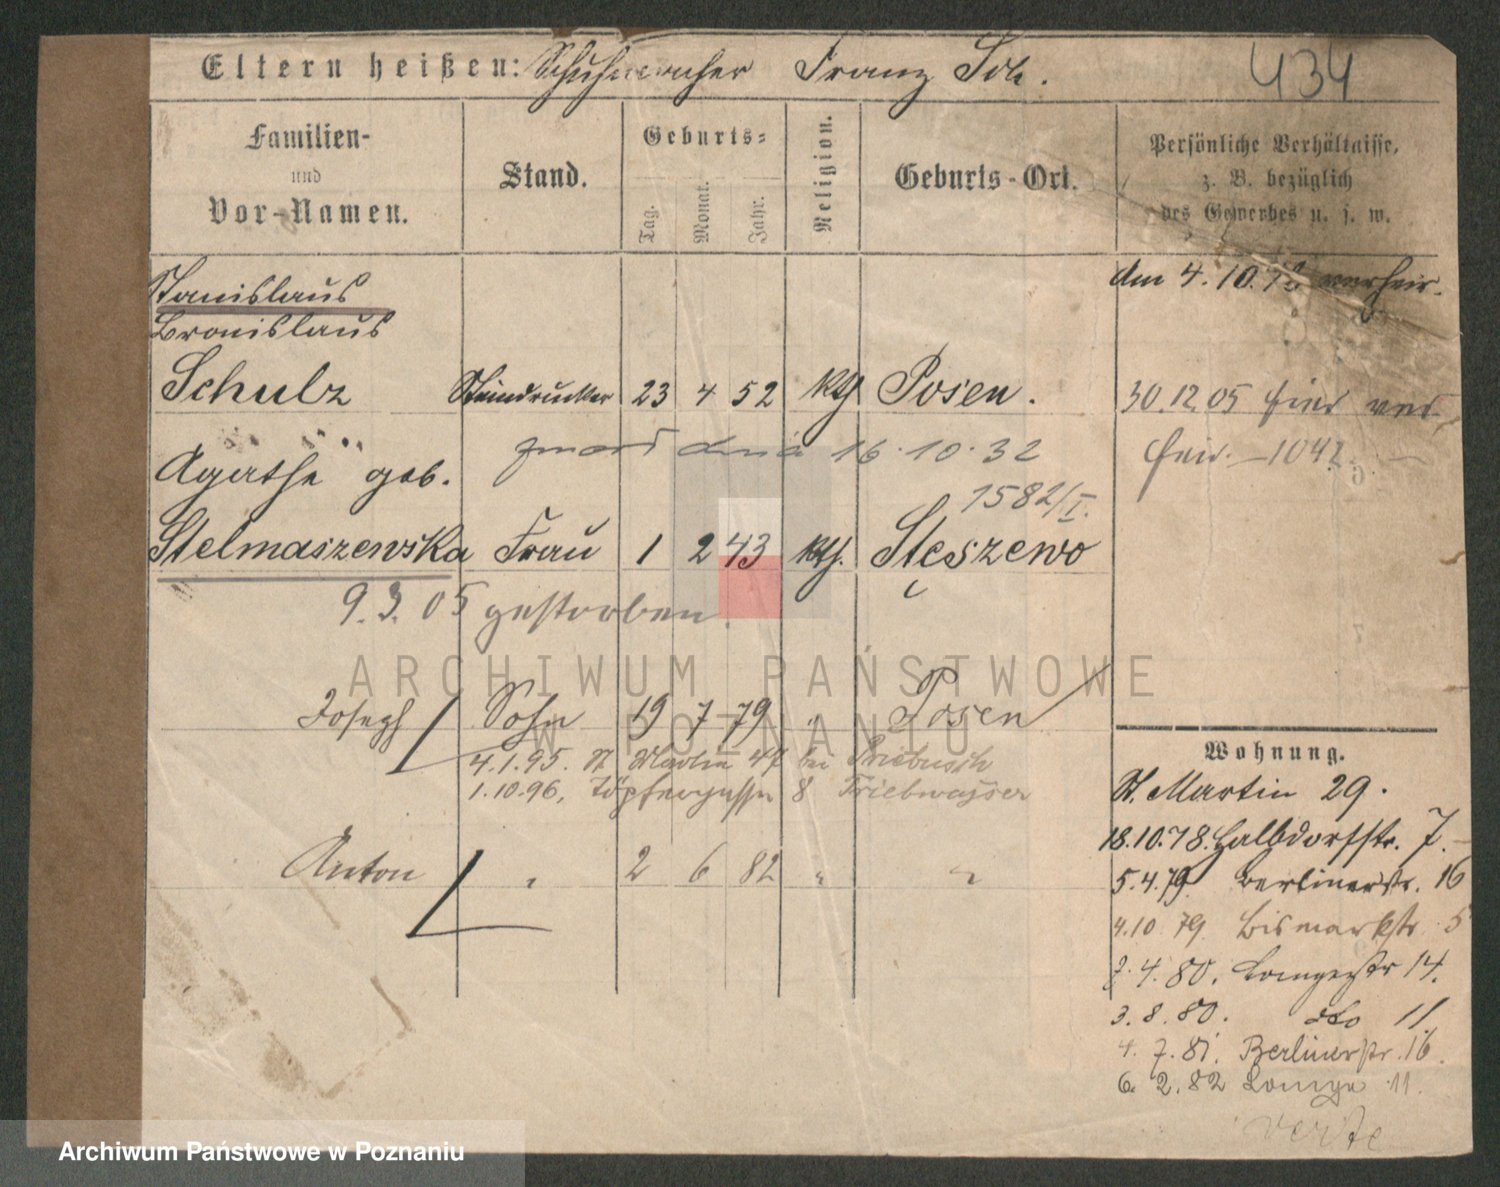 Eltern heißen: Schuhmacher Franz Sch.
434
Familien- und Vor-Namen.
Stand.
Geburts-
Tag. Monat. Jahr.
Religion.
Geburts-Ort.
Persönliche Verhältnisse,
z. B. bezüglich
des Gewerbes u. s. w.
Stanislaus
am 4.10.78 verheir.
Bronislaus
Schulz Steindrucker 23 4 52 kth Posen.
30.12.05 hier ver-
heir. 1042
zmarł dnia 16.10.32
1582/I.
Agathe geb.
Stelmaszewska Frau 1 2 43 kth. Stęszewo
9.3.05 gestorben.
Joseph Sohn 19 7 79 " Posen
4.1.95. St Martin 47 bei
1.10.96. Töpfergasse 8 Triebwasser
Anton " 2 6 82 " "
Wohnung.
St. Martin 29.
18.10.78. Halbdorfstr. 7.
5.4.79 Berlinerstr. 16
4.10 79 Bismarkstr 5
7.4.80. Langestr 14.
3.8.80. dto 11.
4.7.81. Berlinerstr. 16.
6.2.82 Lange 11.
verte
ARCHIWUM PAŃSTWOWE
W POZNANIU
Archiwum Państwowe w Poznaniu